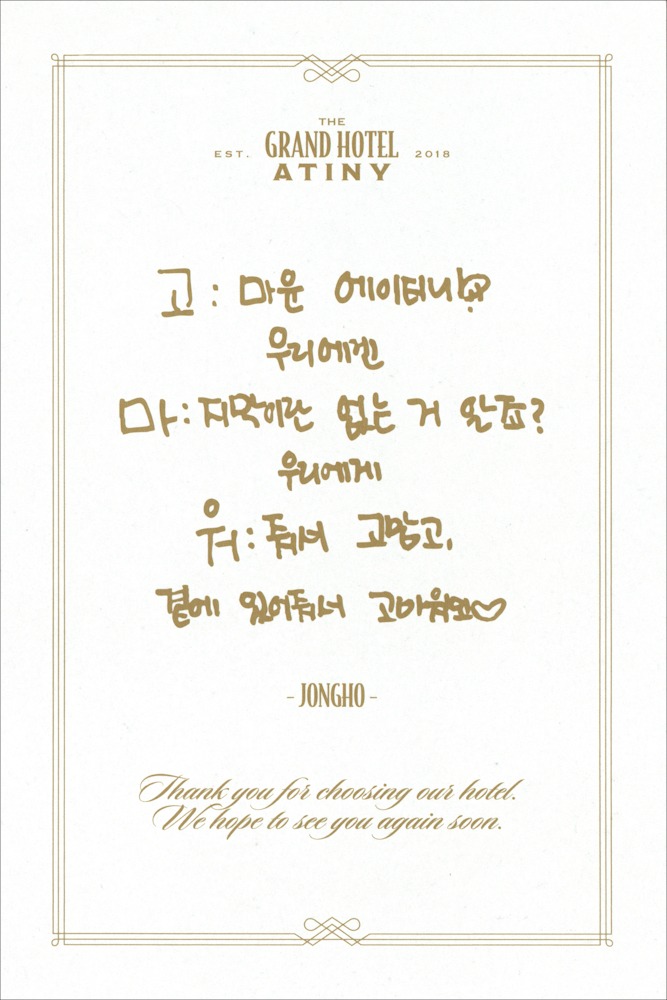 THE
EST. GRAND HOTEL 2018
ATINY
고 : 마운 에이티니
우리에겐
마 : 지막이란 없는 거 알죠?
우리에게
워 : 줘서 고맙고,
곁에 있어줘서 고마워요♡
- JONGHO -
Thank you for choosing our hotel.
We hope to see you again soon.